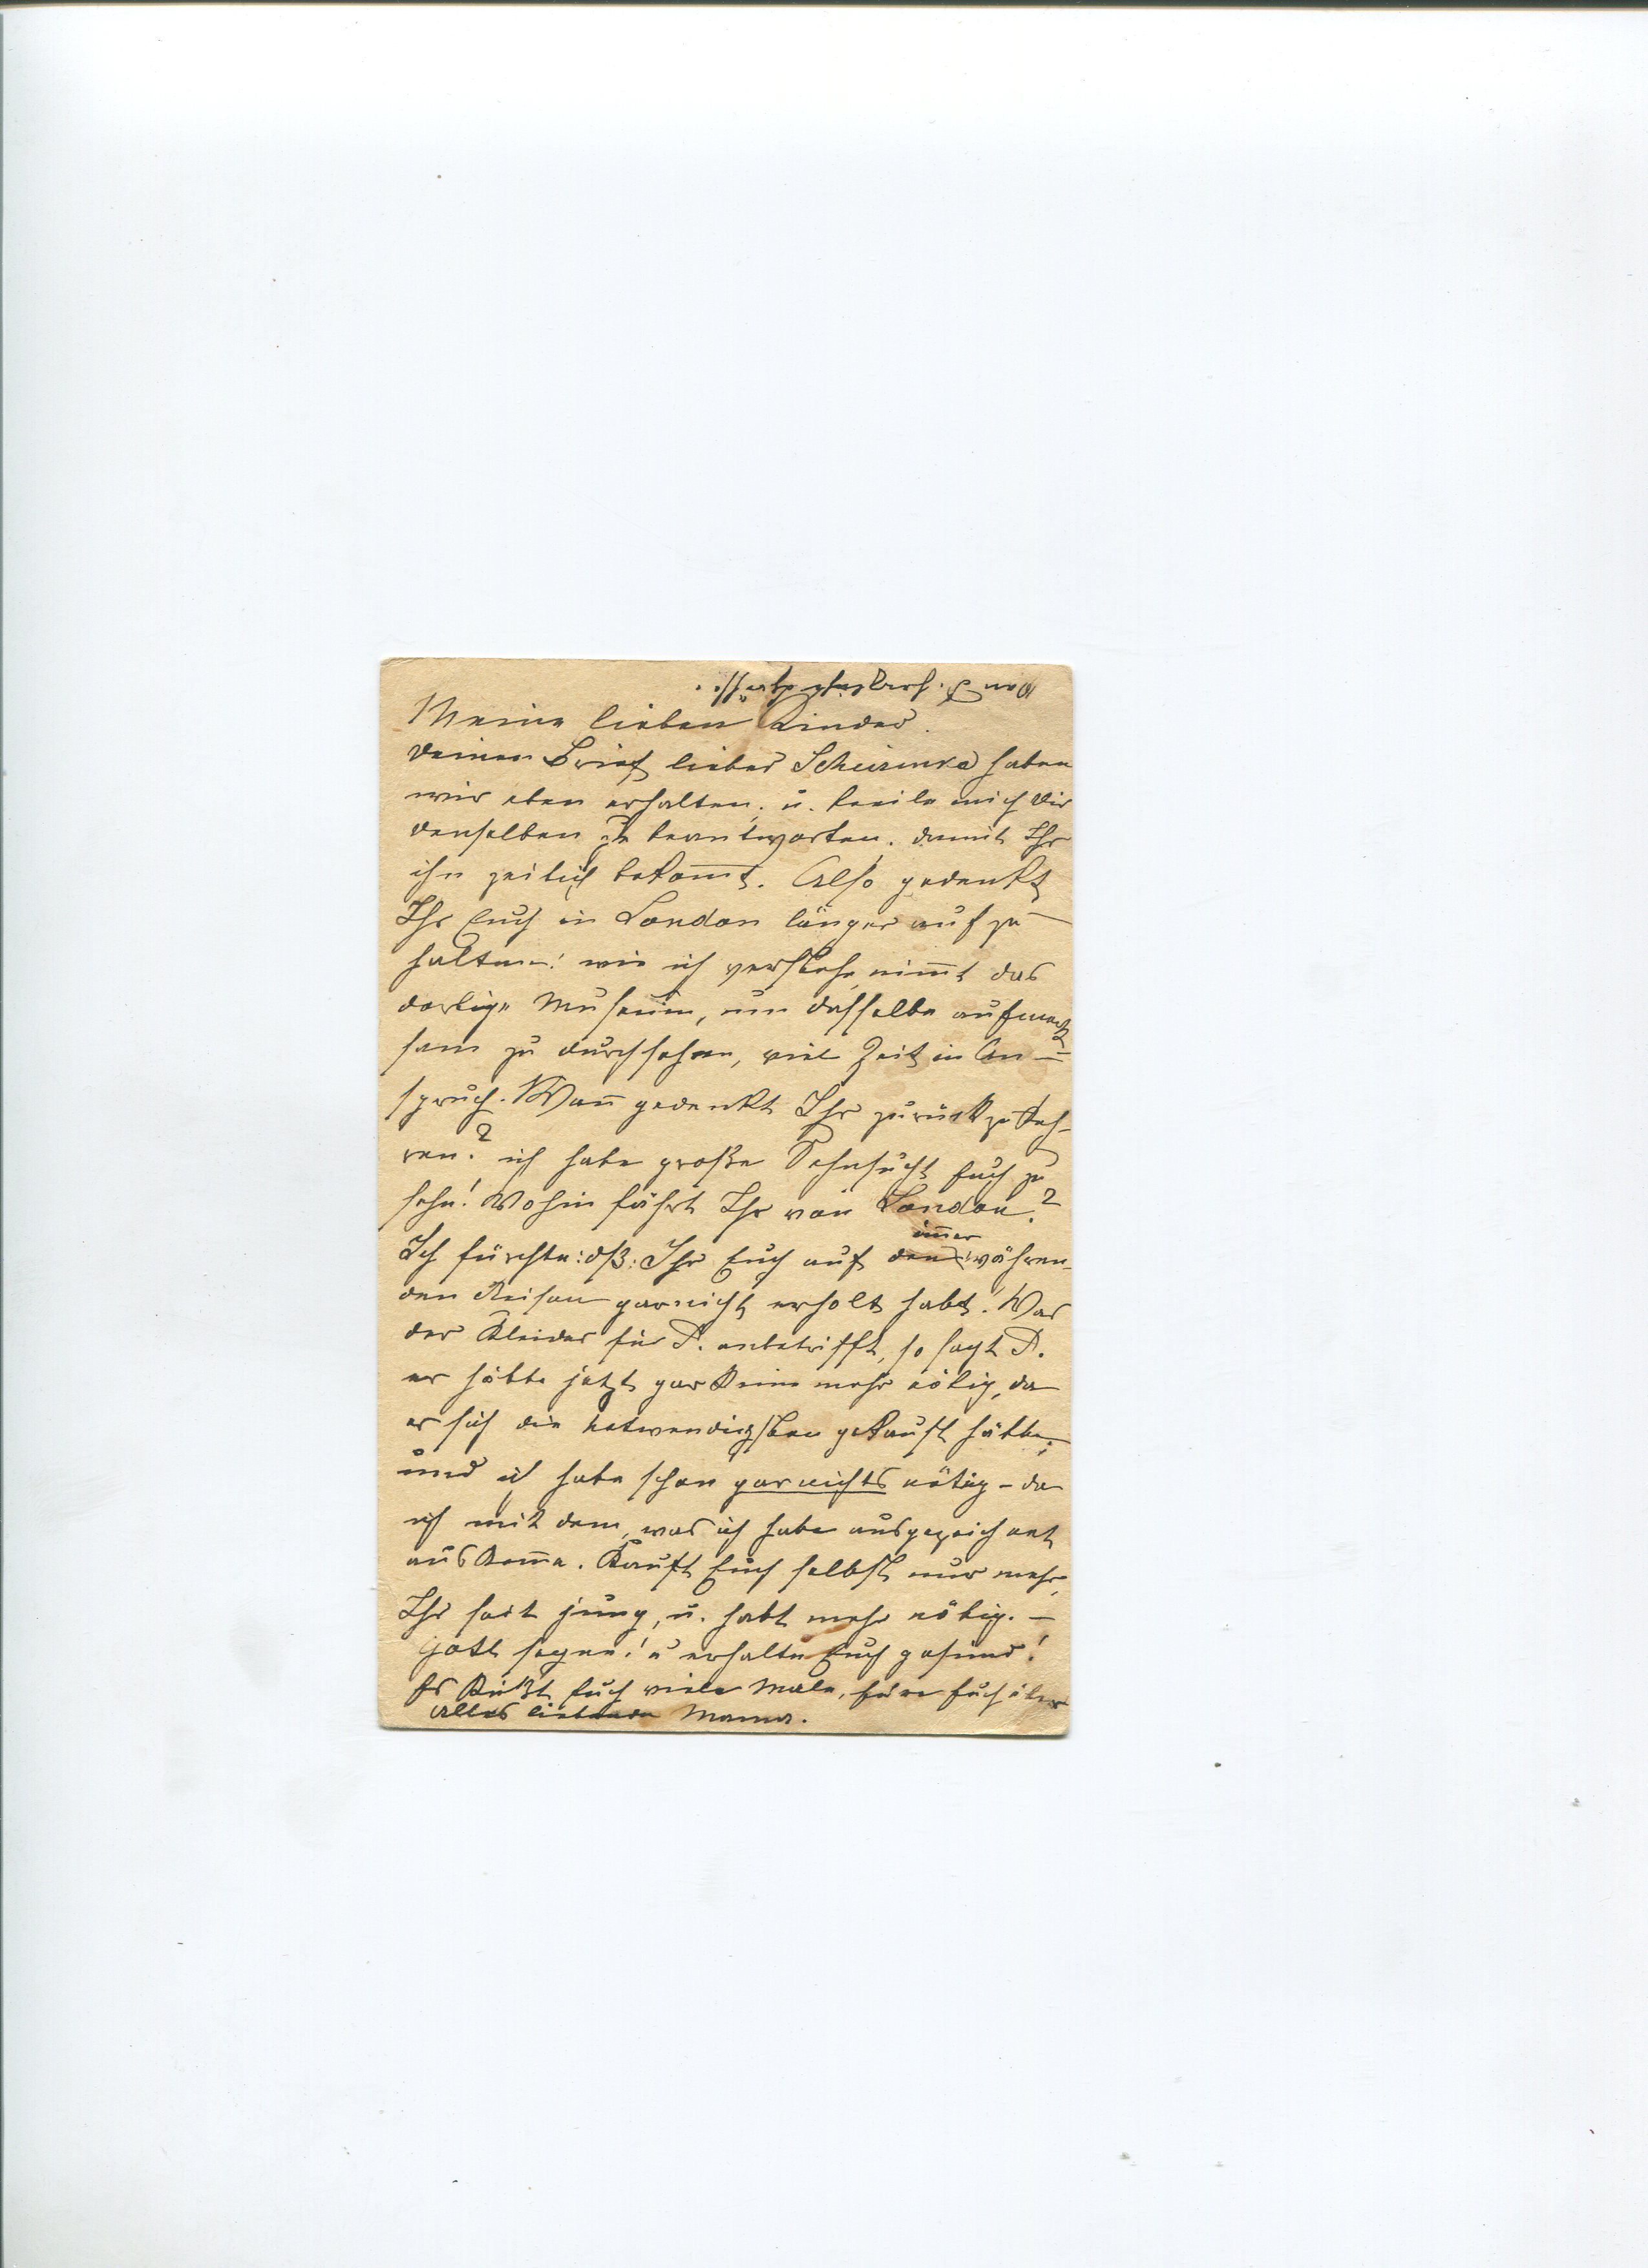 Von P. herzliche Grüße.
Meine lieben Kinder.
Deinen Brief lieber Schurinka haben
wir eben erhalten, u. beeile mich Dir
denselben zu beantworten. damit Ihr
ihn zeitlich bekom̅t. Also gedenkt
Ihr Euch in London länger aufzu-
halten! wie ich verstehe nim̅t das
dortige Museum, um dasselbe aufmerk-
sam zu durchsehen, viel Zeit in An-
spruch. Wan̅ gedenkt Ihr zurückzukeh-
ren? ich habe große Sehnsucht Euch zu
sehn! Wohin fährt Ihr von London?
Ich fürchte: dß: Ihr Euch auf den im̅erwähren-
den Reisen garnicht erholt habt! Was
der Kleider für P. anbetrifft, so sagt P.
er hätte jetzt gar keine mehr nötig, da
er sich die notwendigsten gekauft hätte;
und ich habe schon garnichts nötig - da
ich mit dem, was ich habe ausgezeichnet
auskom̅e. Kauft Euch selbst nur mehr,
Ihr seit jung, u. habt mehr nötig. —
Gott segne! u erhalte Euch gesund!
Es küßt Euch viele Male, Eure Euch über
alles liebende Mama.